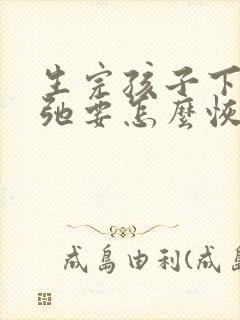 生完孩子下
弛要怎麼恢
成島由利(成島